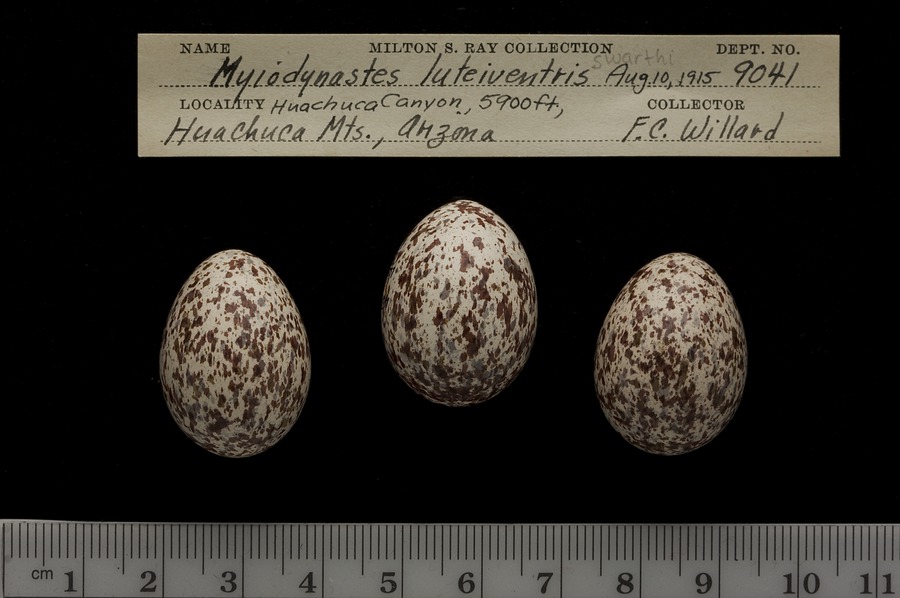 NAME MILTON S. RAY COLLECTION DEPT. NO.
swarthi
Myiodynastes luteiventris Aug. 10, 1915 9041
LOCALITY Huachuca Canyon, 5900ft, COLLECTOR
Huachuca Mts., Arizona F.C. Willard
cm 1 2 3 4 5 6 7 8 9 10 11